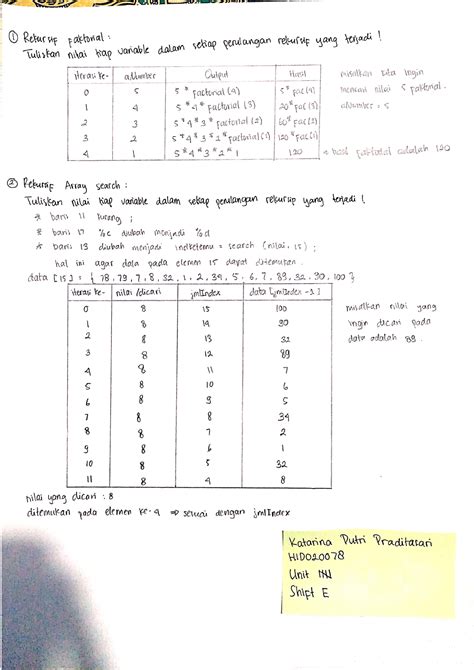 ① Rekursif Faktorial :
Tuliskan nilai tiap variable dalam setiap perulangan rekursif yang terjadi !
Iterasi ke- aNumber Output Hasil
0 5 5 * Factorial (4) 5 * Fac (4)
1 4 5 * 4 * Factorial (3) 20 * Fac (3)
2 3 5 * 4 * 3 * Factorial (2) 60 * Fac (2)
3 2 5 * 4 * 3 * 2 * Factorial (1) 120 * Fac (1)
4 1 5 * 4 * 3 * 2 * 1 120 → hasil faktorial adalah 120
misalkan kita ingin
mencari nilai 5 faktorial.
aNumber = 5
② Rekursif Array search :
Tuliskan nilai tiap variable dalam setiap perulangan rekursif yang terjadi !
* baris 11 kurang ;
* baris 17 %c diubah menjadi %d
* baris 13 diubah menjadi indketemu = search (nilai, 15) ;
hal ini agar data pada elemen 15 dapat ditemukan.
data [15] = { 78, 79, 7, 8, 32, 1, 2, 34, 5, 6, 7, 89, 32, 90, 100 }
Iterasi ke- nilai /dicari jmlIndex data [jmlIndex - 1]
0 8 15 100
1 8 14 90
2 8 13 32
3 8 12 89
4 8 11 7
5 8 10 6
6 8 9 5
7 8 8 34
8 8 7 2
9 8 6 1
10 8 5 32
11 8 4 8
misalkan nilai yang
ingin dicari pada
data adalah 8.
nilai yang dicari : 8
ditemukan pada elemen ke-4 ⇒ sesuai dengan jmlIndex
Katarina Putri Praditasari
H1D020078
Unit
Shift E